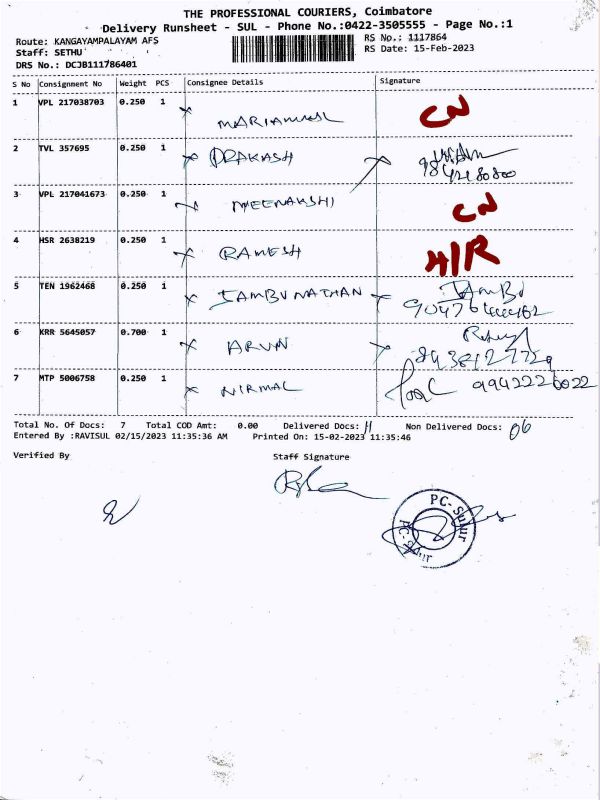 THE PROFESSIONAL COURIERS, Coimbatore
Delivery Runsheet - SUL - Phone No.:0422-3505555 - Page No.:1
Route: KANGAYAMPALAYAM AFS
RS No.: 1117864
Staff: SETHU
RS Date: 15-Feb-2023
DRS No.: DCJB111786401
S No Consignment No Weight PCS Consignee Details Signature
1 VPL 217038703 0.250 1 MARIAMMAL CN
2 TVL 357695 0.250 1 PRAKASH
3 VPL 217041673 0.250 1 MEENAKSHI CN
4 HSR 2638219 0.250 1 RAMESH
5 TEN 1962468 0.250 1 JAMBUNATHAN
6 KRR 5645057 0.700 1 ARUN
7 MTP 5006758 0.250 1 NIRMAL 9942226022
Total No. Of Docs: 7 Total COD Amt: 0.00 Delivered Docs: Non Delivered Docs: 06
Entered By :RAVISUL 02/15/2023 11:35:36 AM Printed On: 15-02-2023 11:35:46
Verified By Staff Signature
PC-Sulur
PC-Sulur